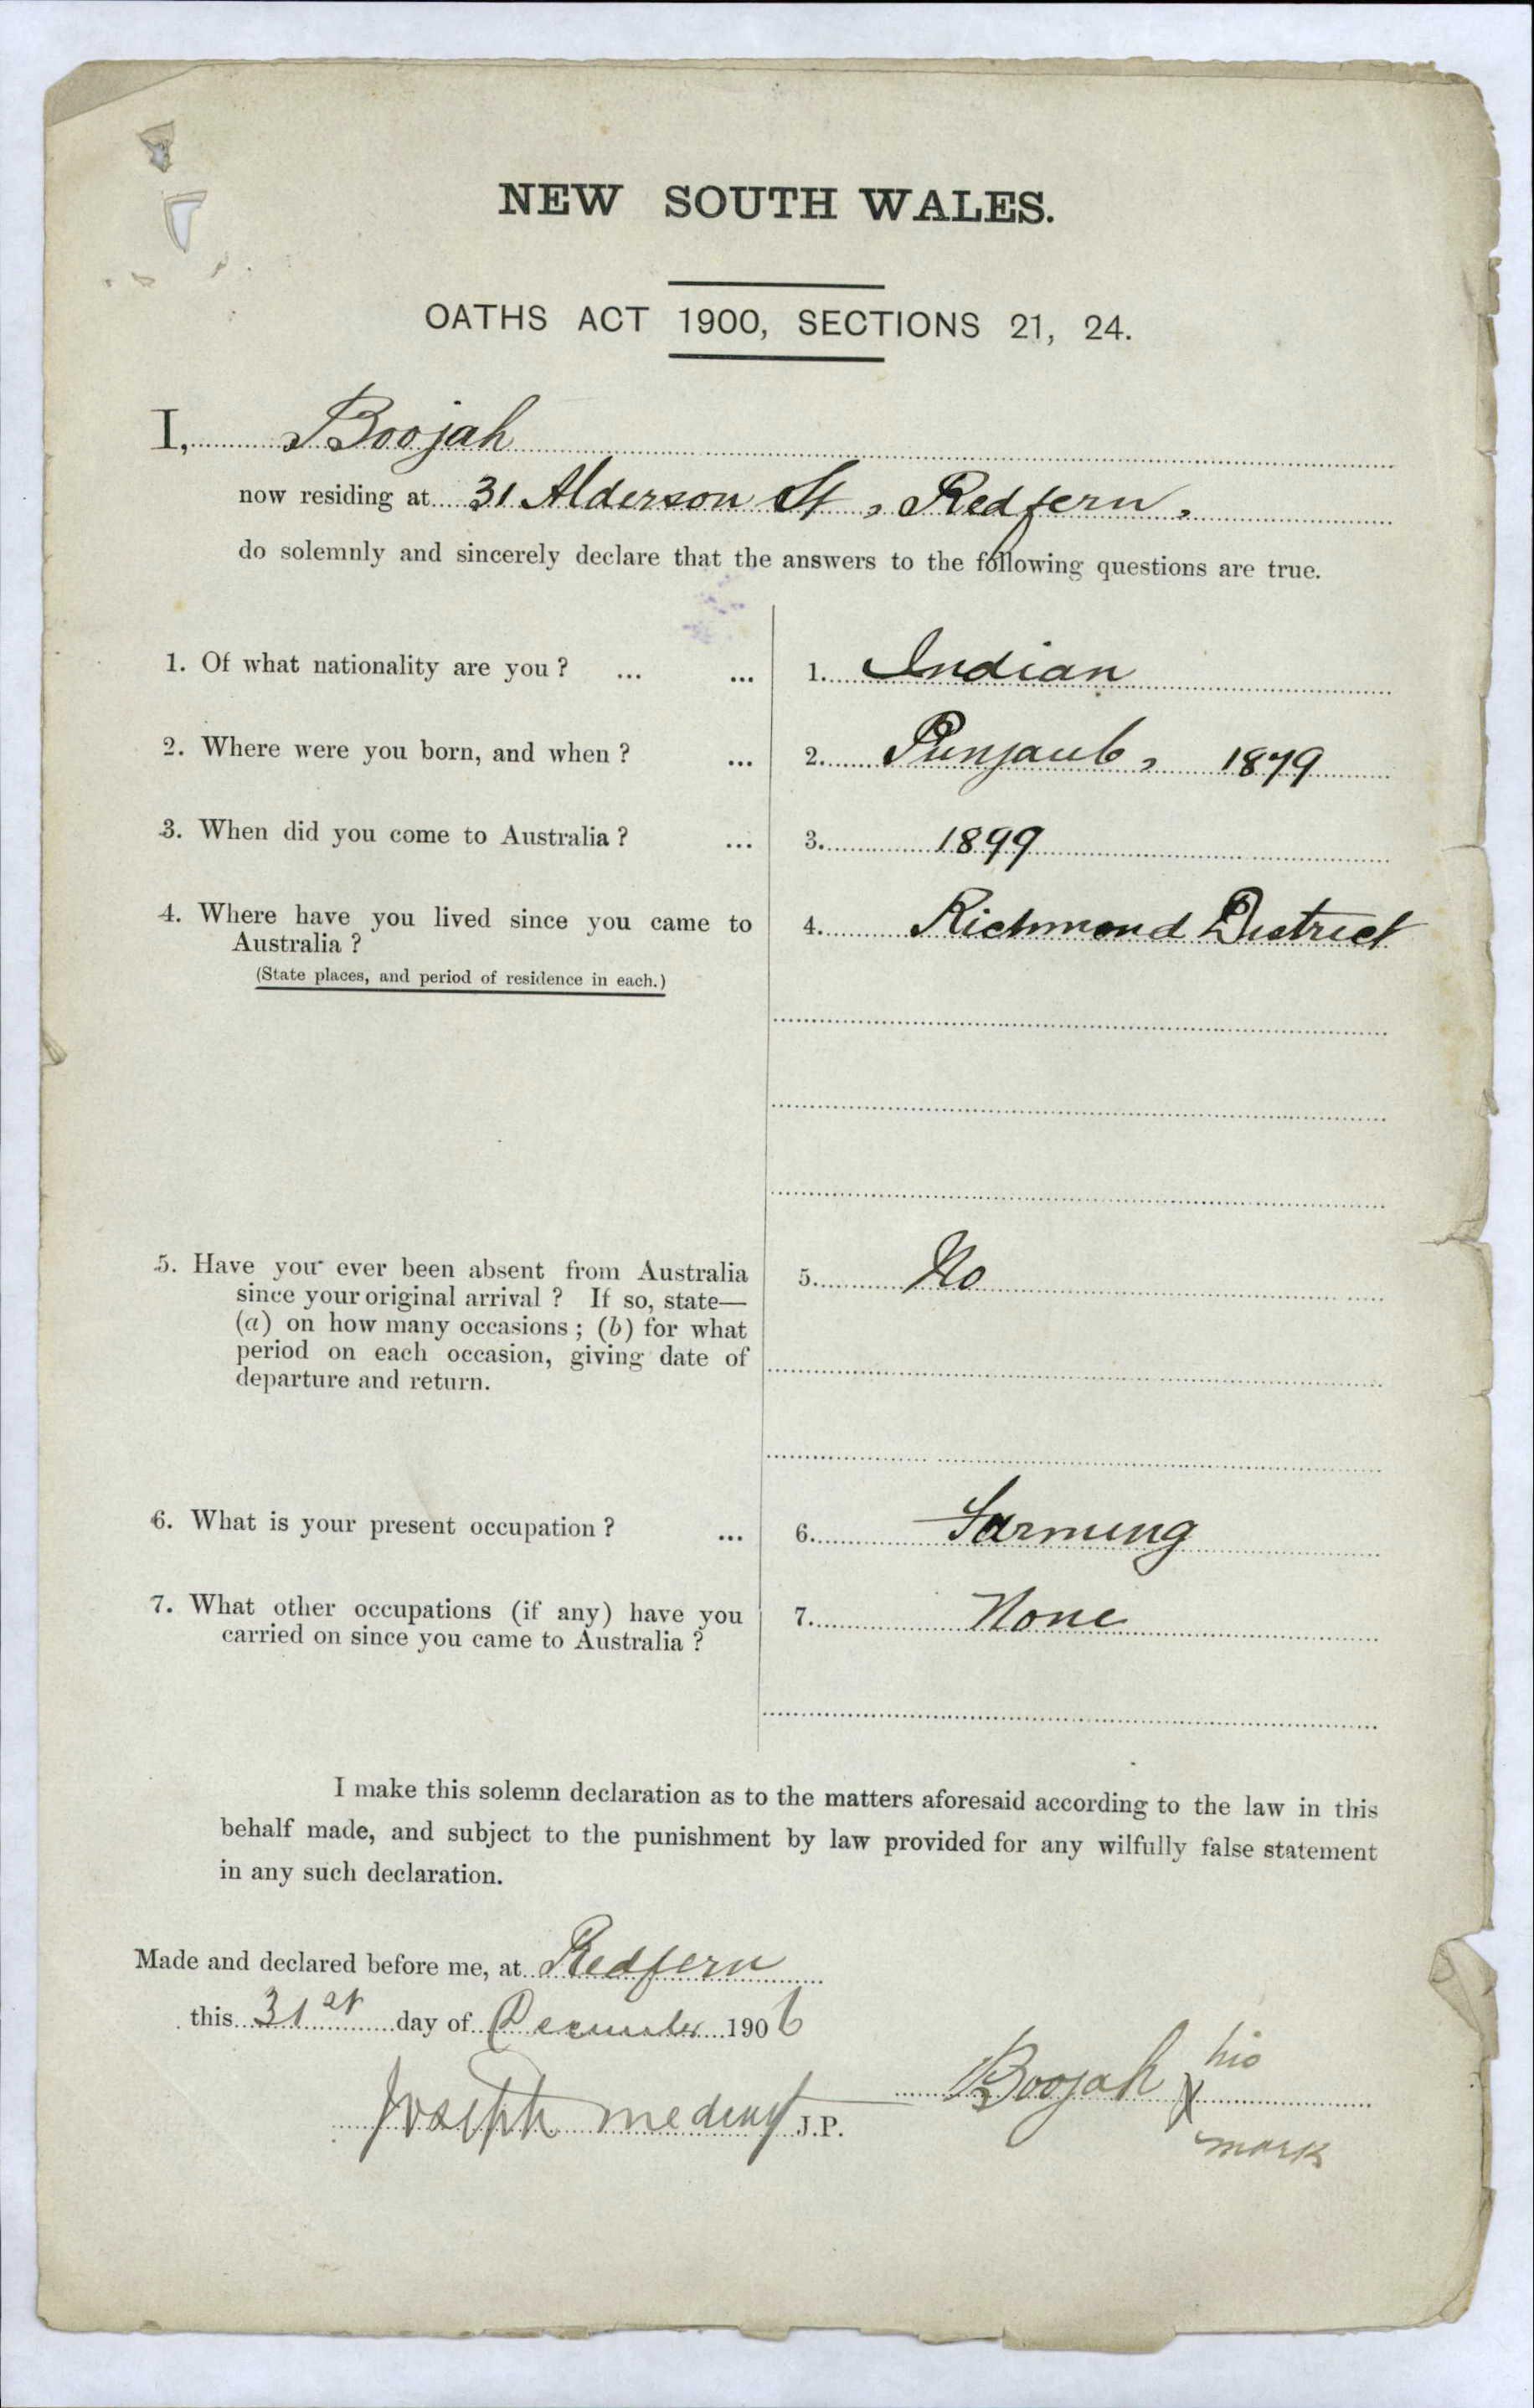 NEW SOUTH WALES.
OATHS ACT 1900, SECTIONS 21, 24.
I, Boojah
now residing at 31 Alderson St, Redfern,
do solemnly and sincerely declare that the answers to the following questions are true.
1. Of what nationality are you ? ... ... 1. Indian
2. Where were you born, and when ? ... 2. Punjaub, 1879
3. When did you come to Australia ? ... 3. 1899
4. Where have you lived since you came to 4. Richmond District
Australia ?
(State places, and period of residence in each.)
5. Have you ever been absent from Australia 5. No
since your original arrival ? If so, state—
(a) on how many occasions ; (b) for what
period on each occasion, giving date of
departure and return.
6. What is your present occupation ? ... 6. Farming
7. What other occupations (if any) have you 7. None
carried on since you came to Australia ?
I make this solemn declaration as to the matters aforesaid according to the law in this
behalf made, and subject to the punishment by law provided for any wilfully false statement
in any such declaration.
Made and declared before me, at Redfern
this 31st day of December 1906
his
Boojah X
Joseph J.P.
mark